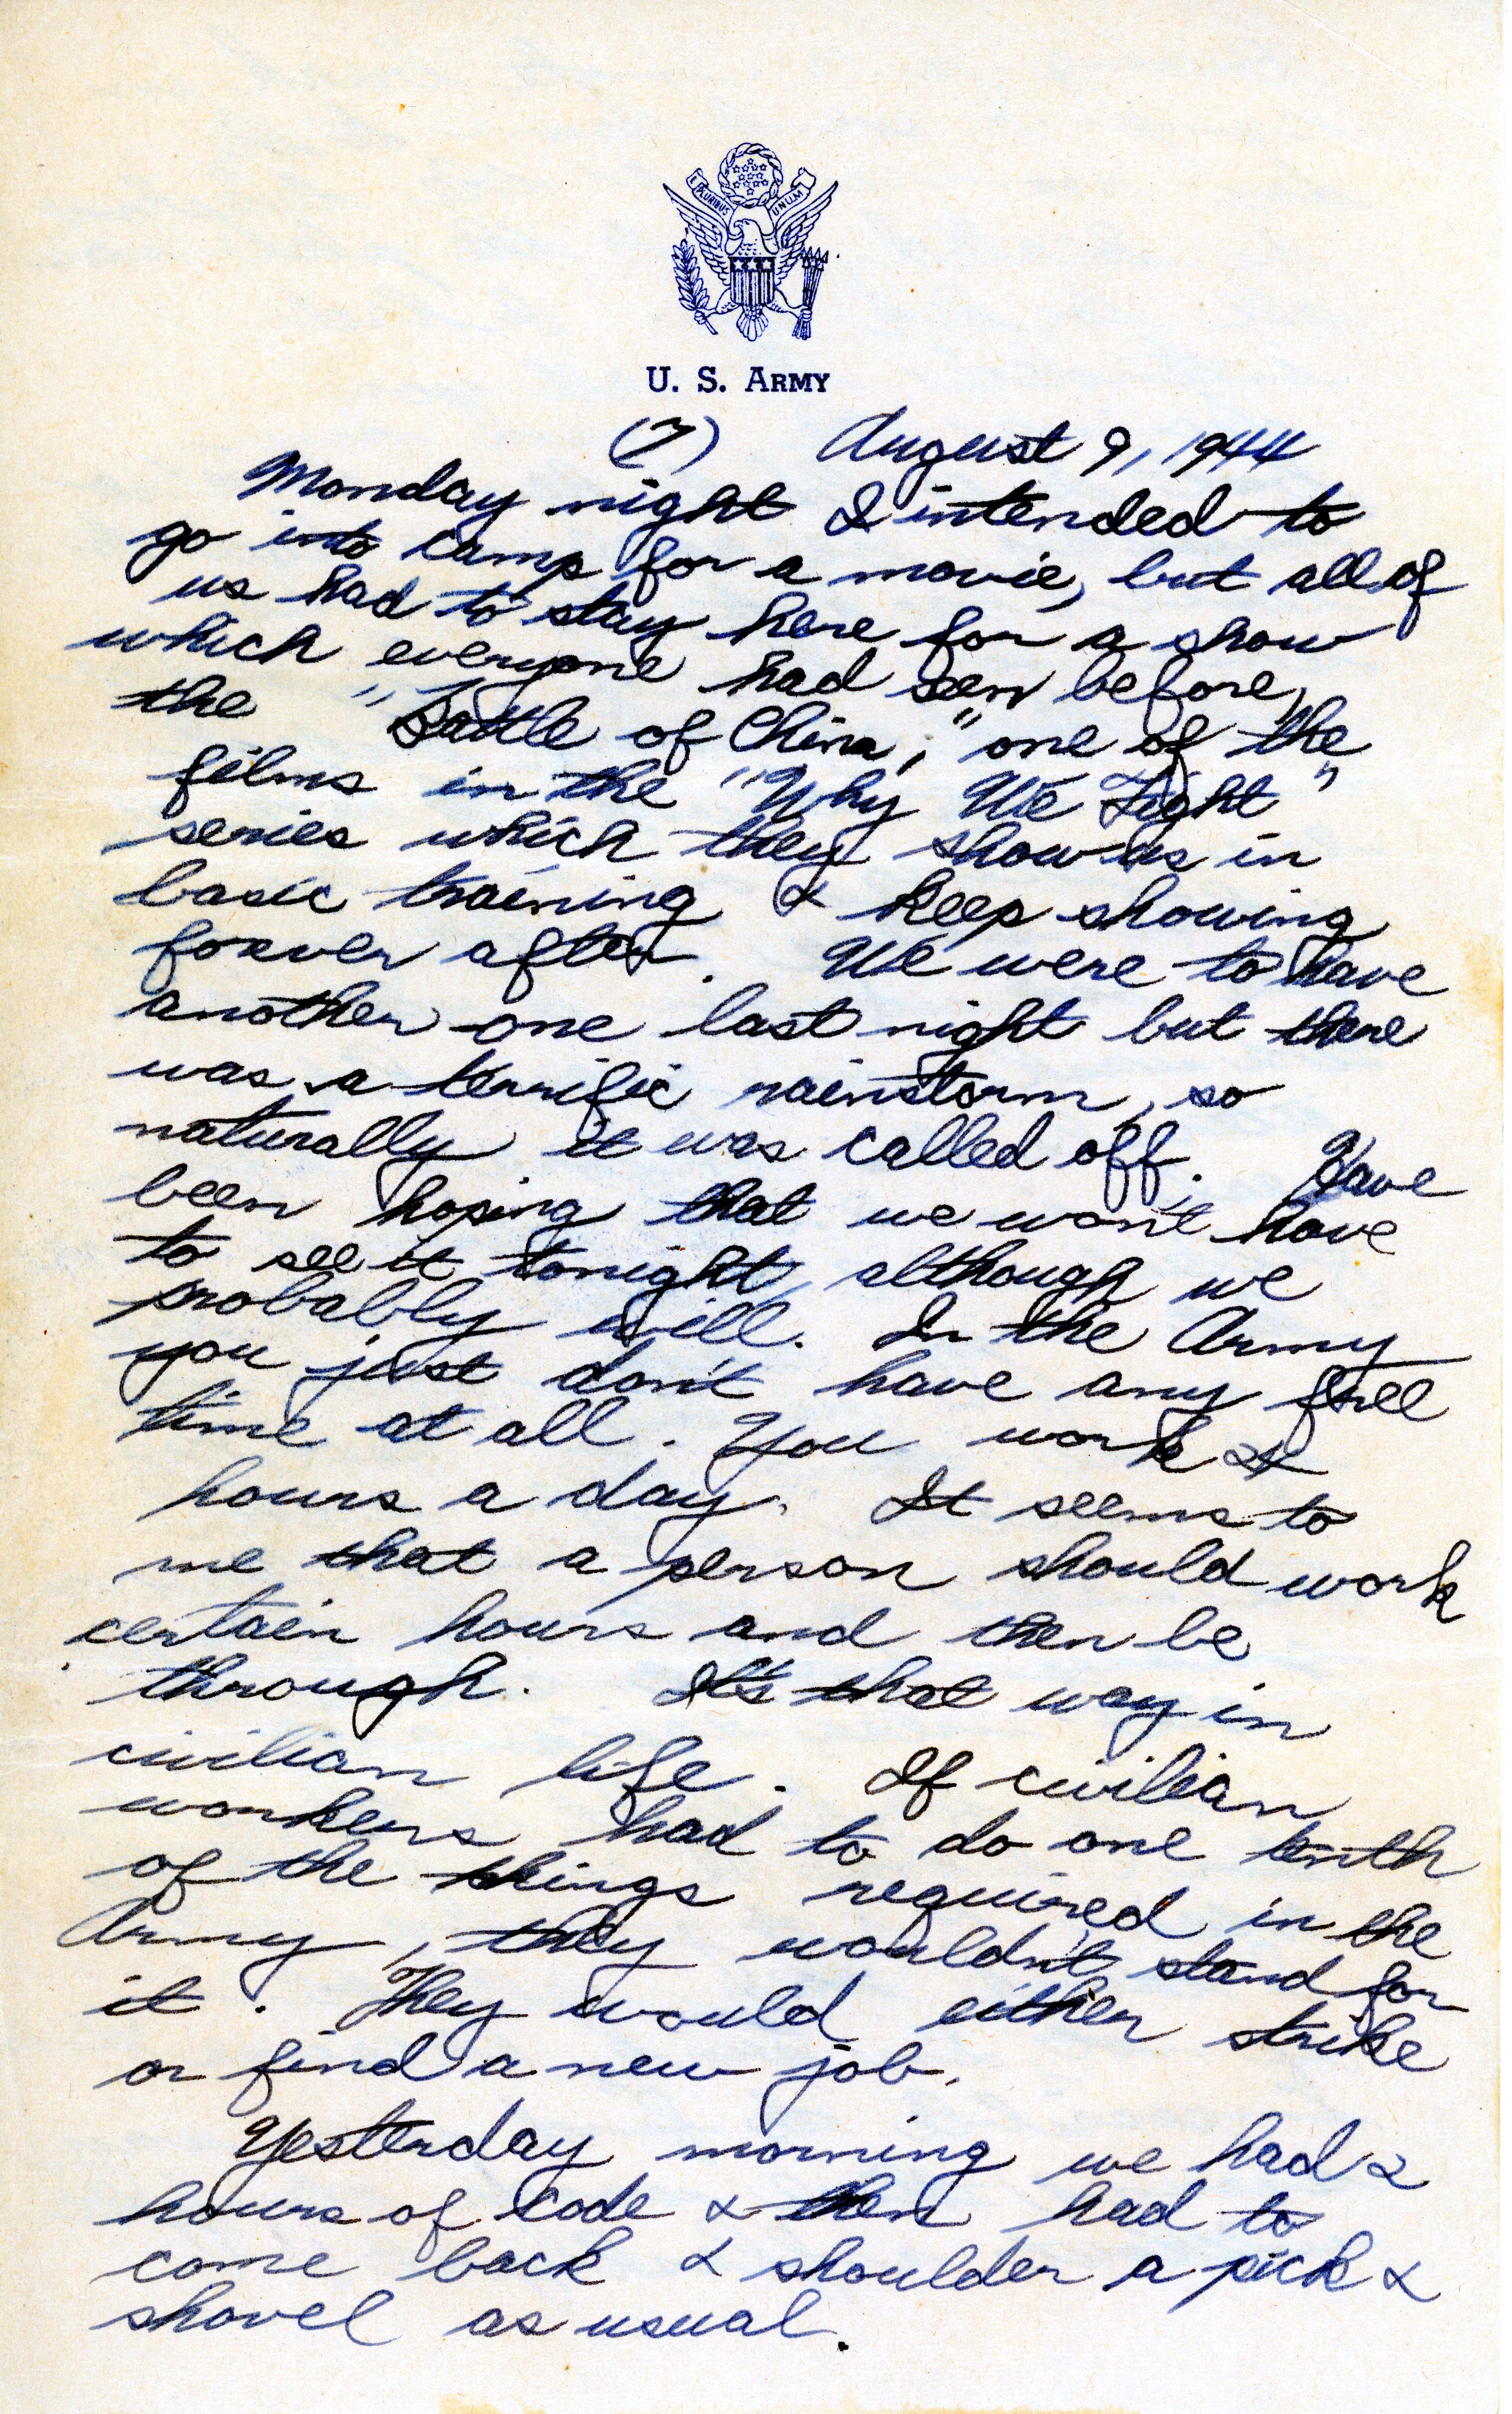 E PLURIBUS UNUM
U. S. ARMY
(7) August 9, 1944
Monday night I intended to
go into camp for a movie, but all of
us had to stay here for a show
which everyone had seen before,
the "Battle of China," one of the
films in the "Why We Fight"
series which they show us in
basic training & keep showing
forever after. We were to have
another one last night but there
was a terrific rainstorm, so
naturally it was called off. Have
been hoping that we won't have
to see it tonight, although we
probably will. In the Army
you just don't have any free
time at all. You work 24
hours a day. It seems to
me that a person should work
certain hours and then be
through. It's that way in
civilian life. If civilian
workers had to do one tenth
of the things required in the
Army, they wouldn't stand for
it. They would either strike
or find a new job.
Yesterday morning we had 2
hours of code & then had to
come back & shoulder a pick &
shovel as usual.